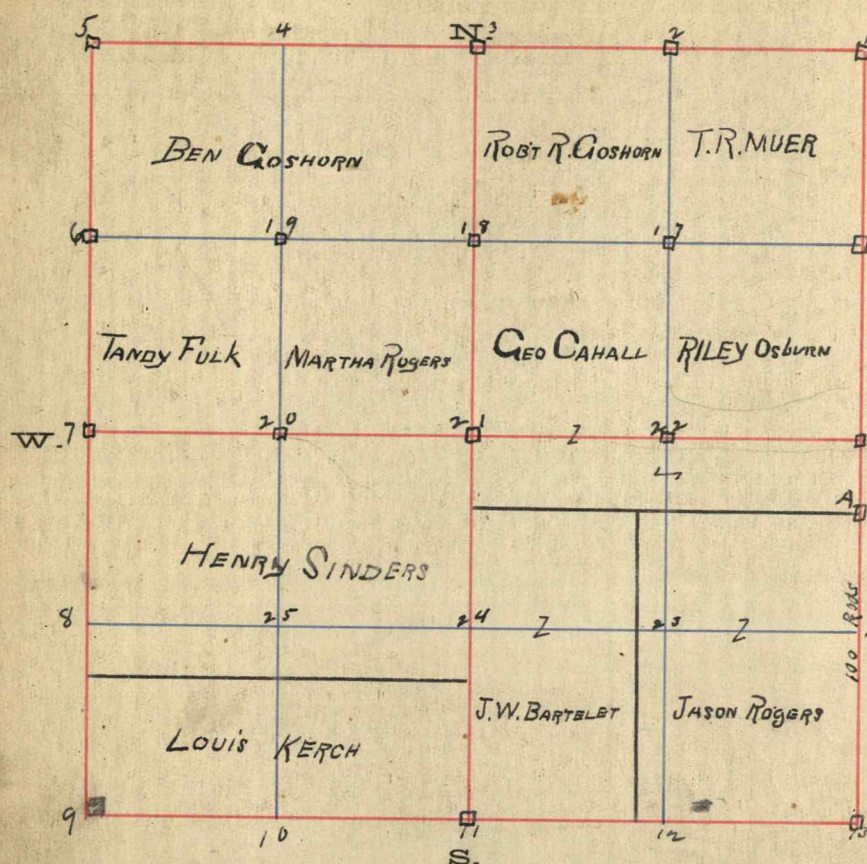 5 4 N. 3 2
BEN GOSHORN ROBT R. GOSHORN T.R. MUER
6 19 18 17
TANDY FULK MARTHA ROGERS GEO CAHALL RILEY Osburn
W. 7 20 21 Z 22
A
HENRY SINDERS
100 Rods
8 25 24 Z 23 Z
J.W. BARTELET JASON ROGERS
LOUIS KERCH
9 10 11 12 13
S.